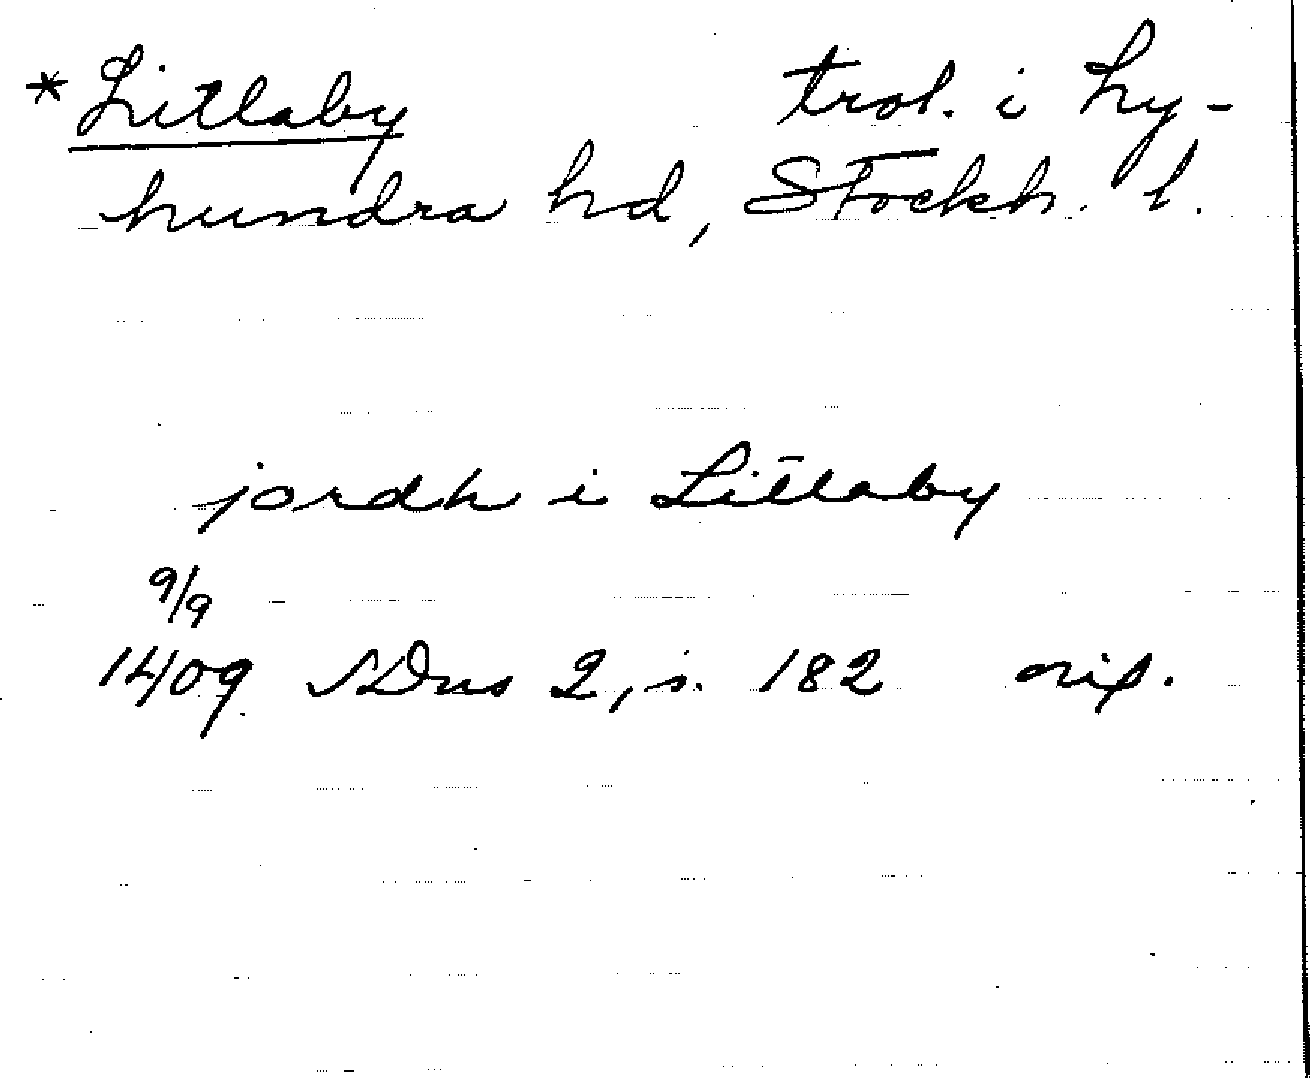 *Litlaby trol. i Ly-
hundra hd, Stockh. l.
jordh i Litlaby
9/9
1409 SDns 2, s. 182 orig.